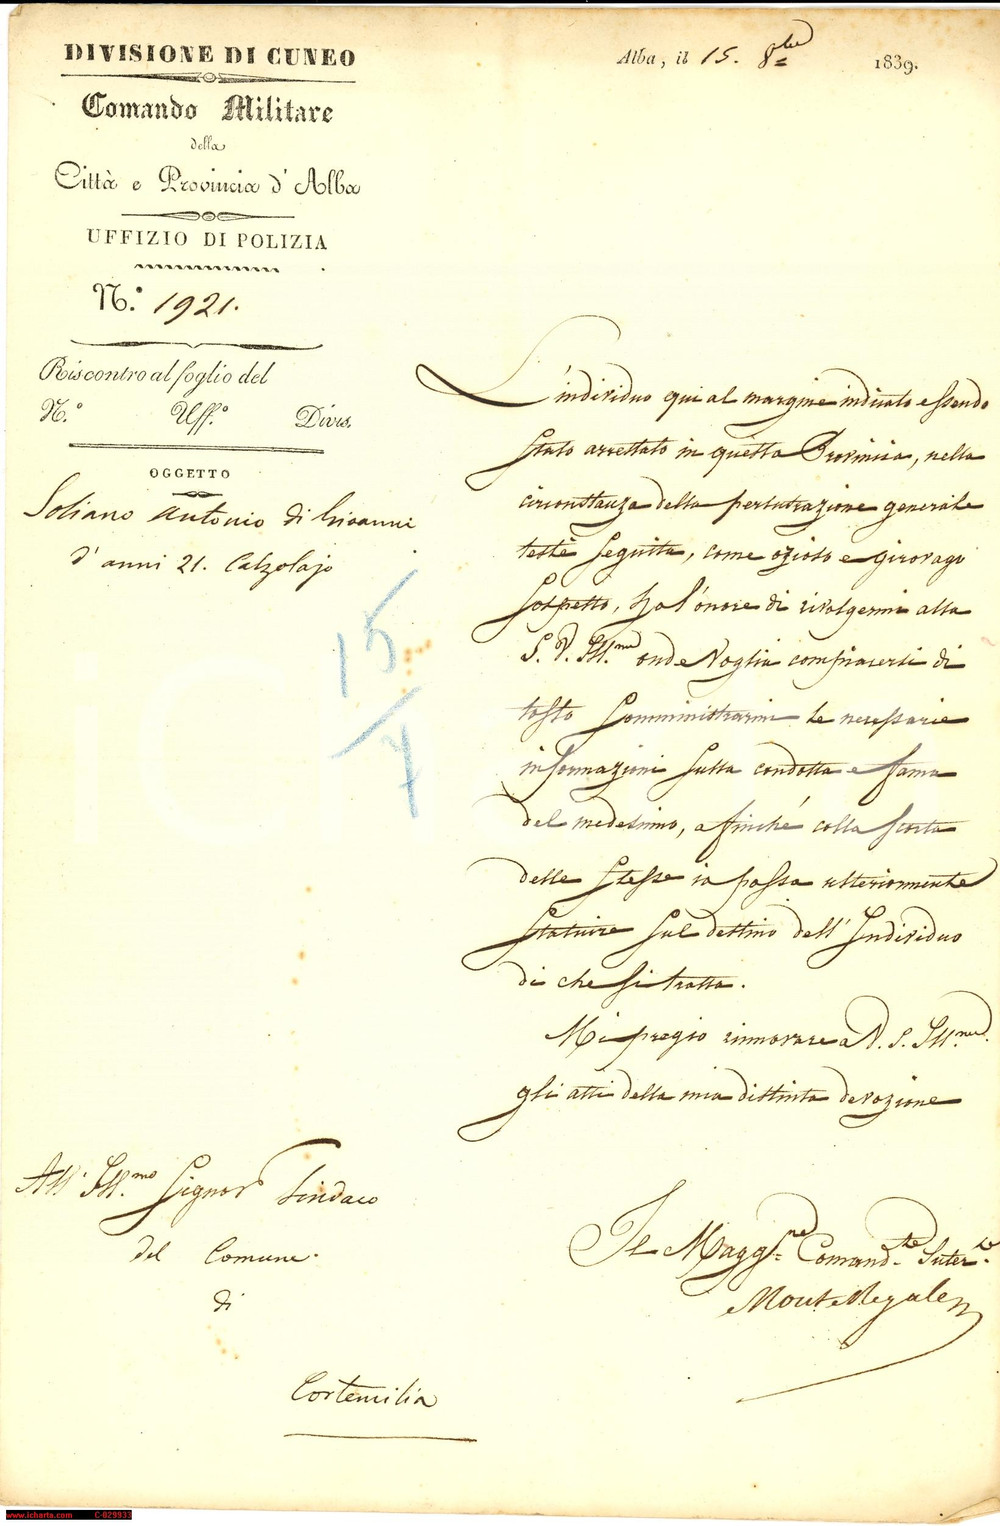 DIVISIONE DI CUNEO
Comando Militare
della
Città e Provincia d'Alba
UFFIZIO DI POLIZIA
N.° 1921.
Riscontro al foglio del
N.° Uff.° Divis.
OGGETTO
Soliano Antonio di Giovanni
d'anni 21. Calzolajo
15/7
Alba, il 15. 8bre 1839.
L'individuo qui al margine indicato essendo
stato arrettato in questa Provincia, nella
circonstanza della perlutrazione generale
testè seguita, come ozioso e girovago
sospetto, ho l'onore di rivolgermi alla
S. V. Ill.ma onde Voglia compiacersi di
tosto somministrarmi le necessarie
informazioni sulla condotta e fama
del medesimo, affinché colla scorta
delle stesse io possa ulteriormente
statuire sul destino dell'Individuo
di che si tratta.
Mi pregio rinnovare a V. S. Ill.ma
gli atti della mia distinta devozione
Il Magg.re Comand.te Inter.le
Monteregale
All' Ill.mo Signor Sindaco
del Comune
di
Cortemilia
www.icharta.com C-029933